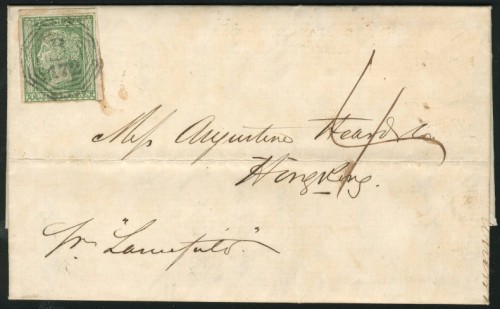 Mess Augustine Heard & Co
Hong Kong.
pr "Lancefield"